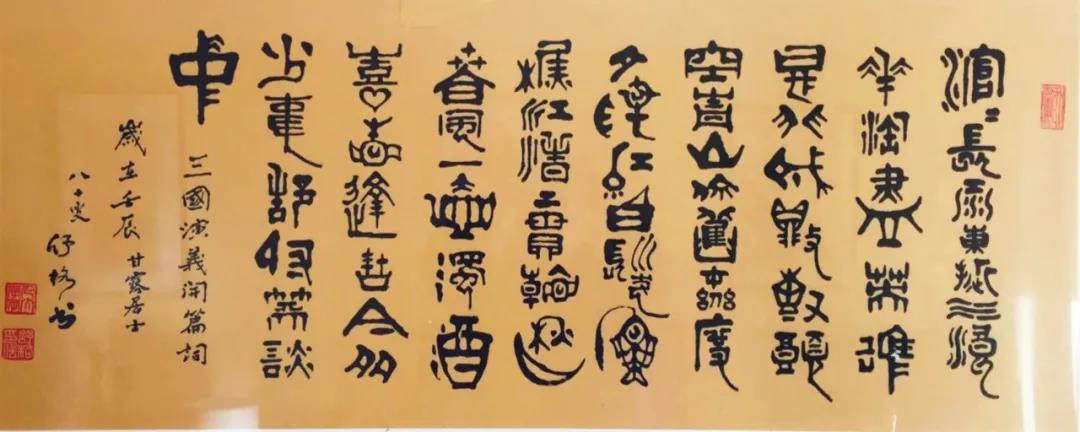 滾滾長江東逝水浪
花淘盡英雄
是非成敗轉頭
空青山依舊在幾度
夕陽紅白髮漁
樵江渚上慣看秋月
春風一壺濁酒
喜相逢古今多
少事都付笑談
中
三國演義開篇詞
歲在壬辰甘露居士
八十叟